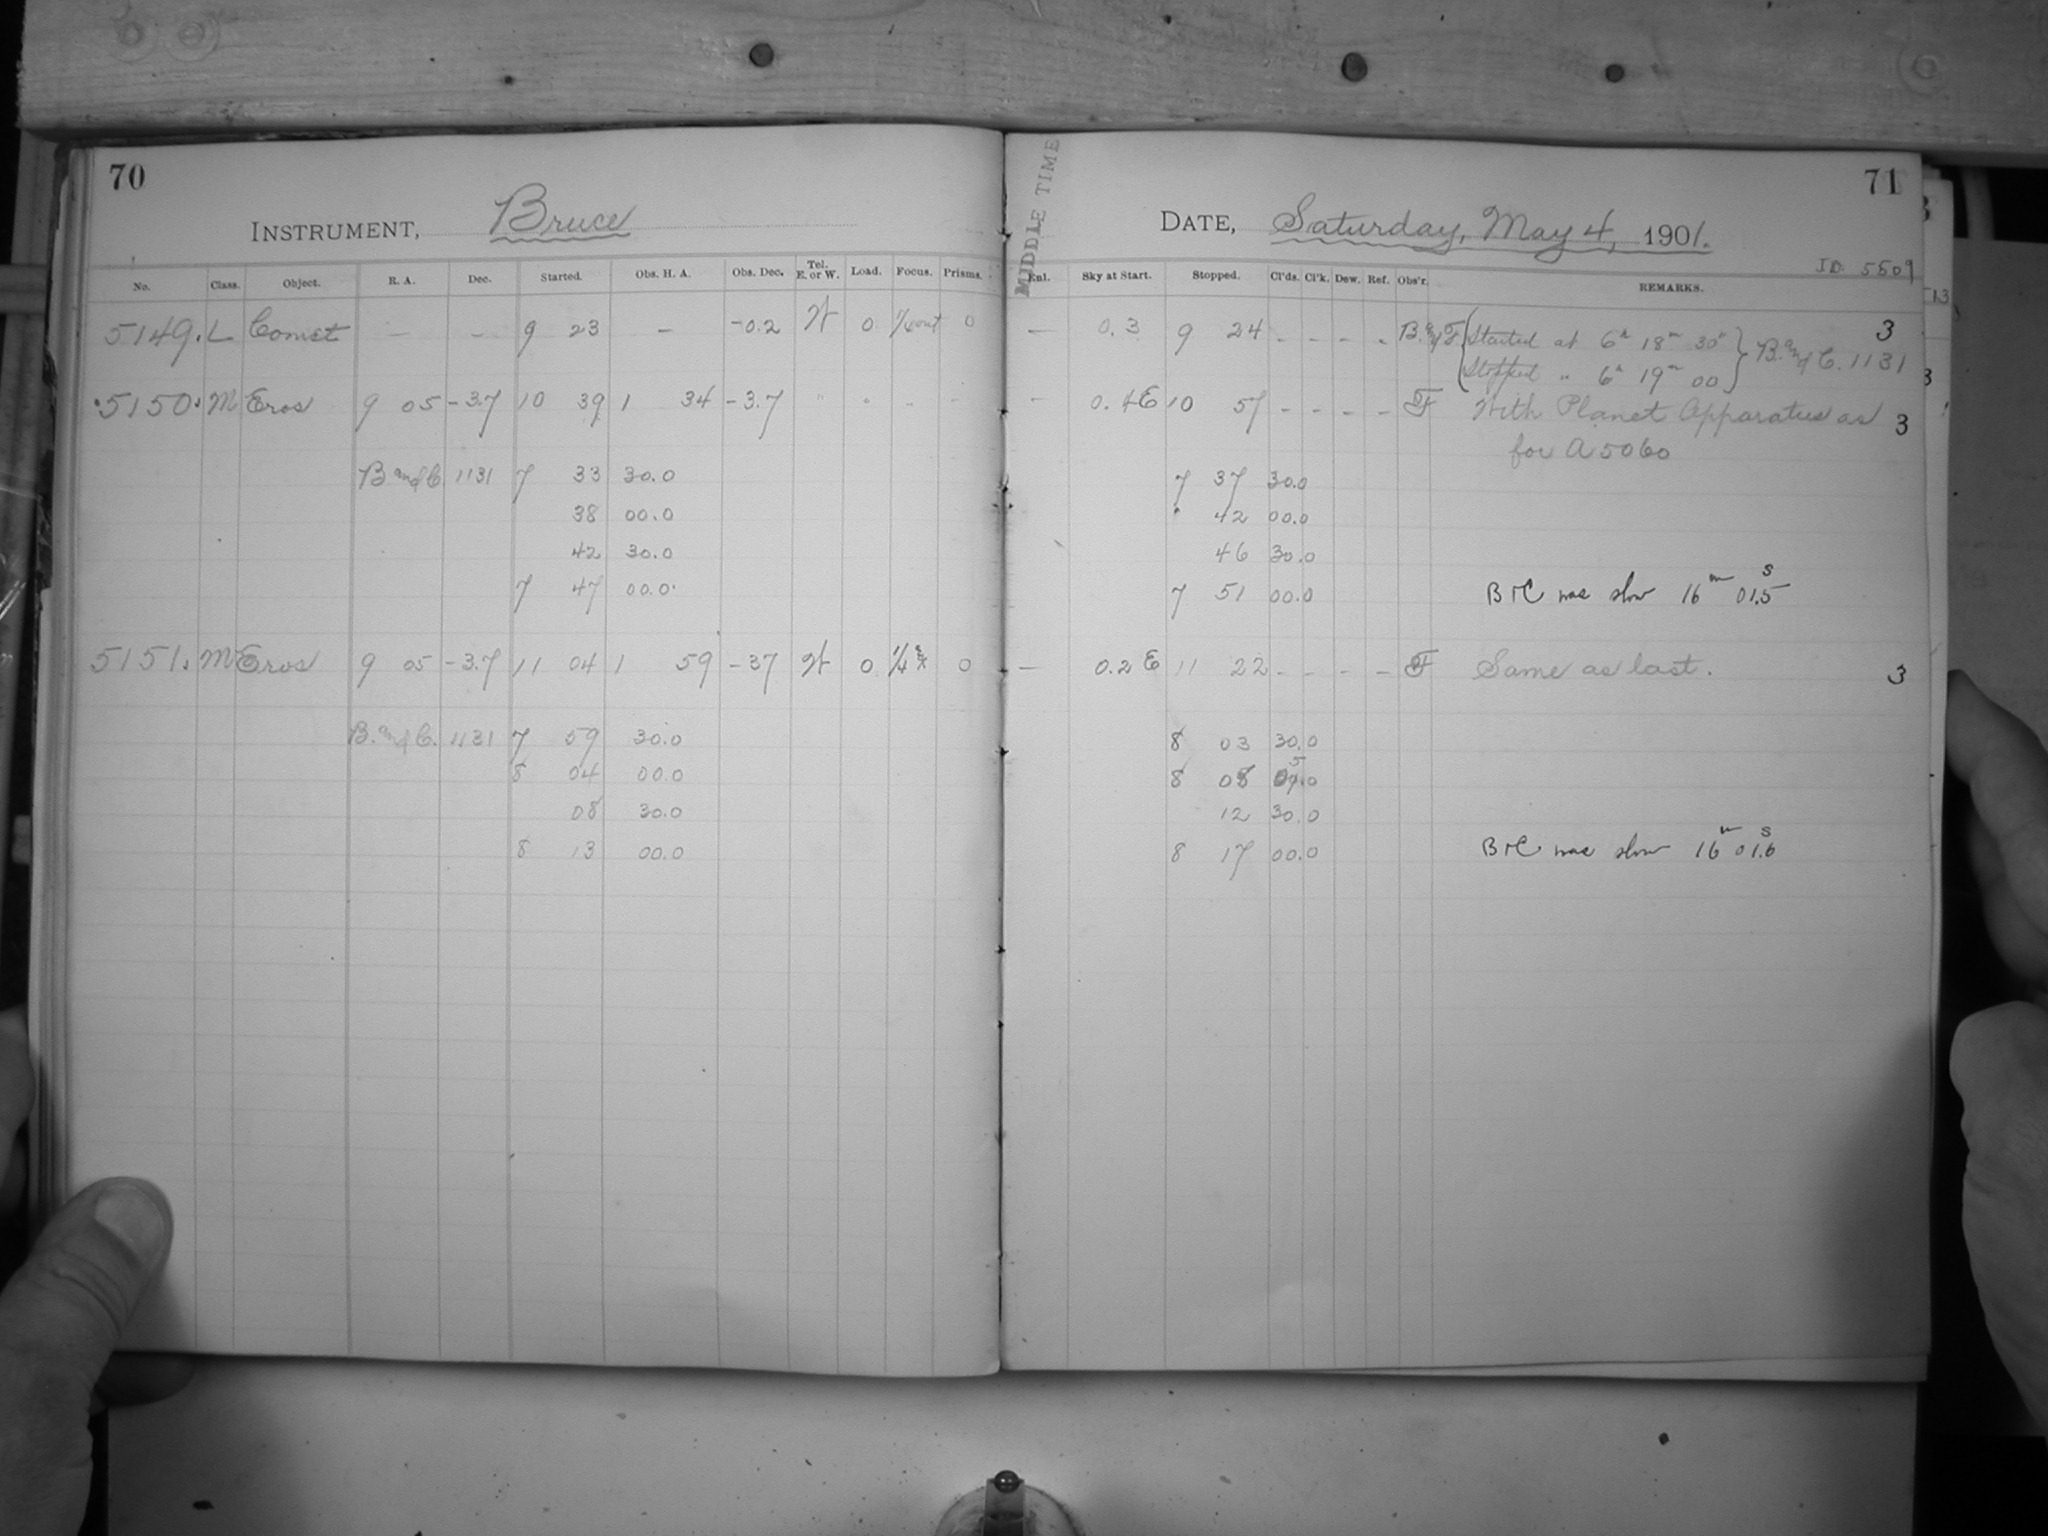 70
INSTRUMENT, Bruce
No. Class. Object. R. A. Dec. Started. Obs. H. A. Obs. Dec. Tel. E. or W. Load. Focus. Prisms.
5149. L Comet — — 9 23 — -0.2 W 0 out 0
5150. M Eros 9 05 -3.7 10 39 1 34 -3.7 " " " "
B and C 1131 7 33 30.0
38 00.0
42 30.0
7 47 00.0
5151. M Eros 9 05 -3.7 11 04 1 59 -37 W 0 1/4 0
B. and C. 1131 7 59 30.0
8 04 00.0
08 30.0
8 13 00.0
MIDDLE TIME
71
DATE, Saturday, May 4, 1901.
JD. 5509
Enl. Sky at Start. Stopped. Cl'ds. Cl'k. Dew. Ref. Obs'r. REMARKS.
— 0.3 9 24 - - - - B. and F { Started at 6h 18m 30s } B. and C. 1131 3
Stopped " 6h 19m 00
- 0.4 E 10 57 - - - - F With Planet Apparatus as 3
for A 5060
7 37 30.0
42 00.0
46 30.0
7 51 00.0 B+C was slow 16m 01.5s
— 0.2 E 11 22 - - - - F Same as last. 3
8 03 30.0
8 08 0.0
12 30.0
8 17 00.0 B+C was slow 16m 01.6s